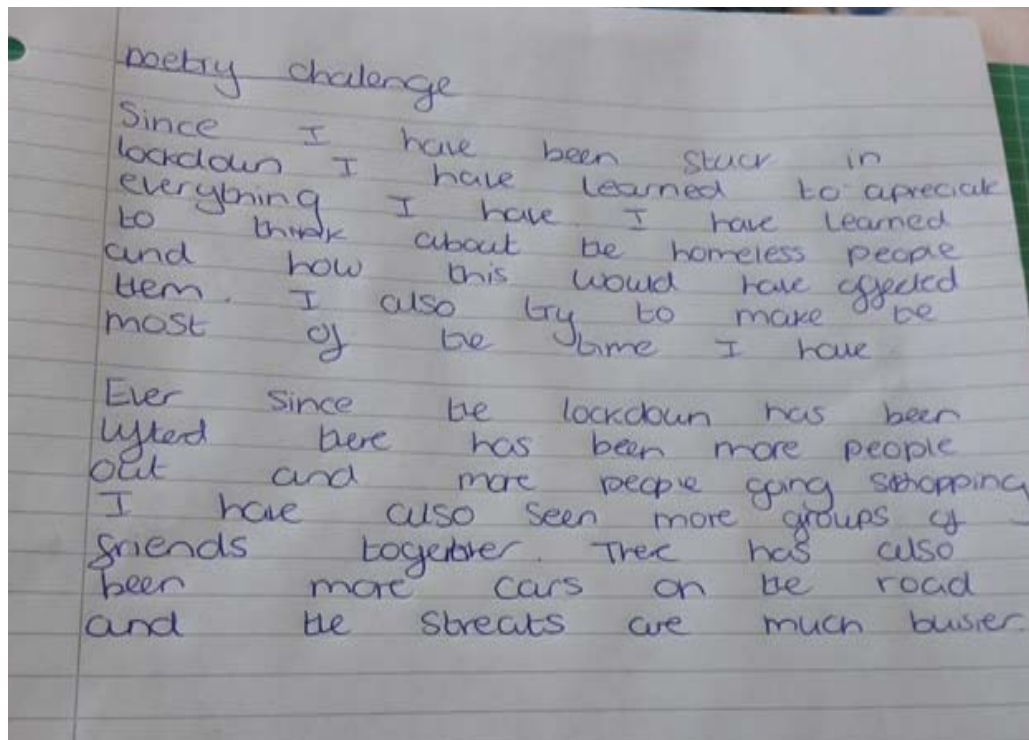 poetry chalenge
Since I have been stuck in
lockdown I have learned to apreciate
everything I have. I have learned
to think about the homeless people
and how this would have affected
them. I also try to make the
most of the time I have
Ever since the lockdown has been
lifted there has been more people
out and more people going shopping
I have also seen more groups of
friends together. There has also
been more cars on the road
and the streats are much busier.